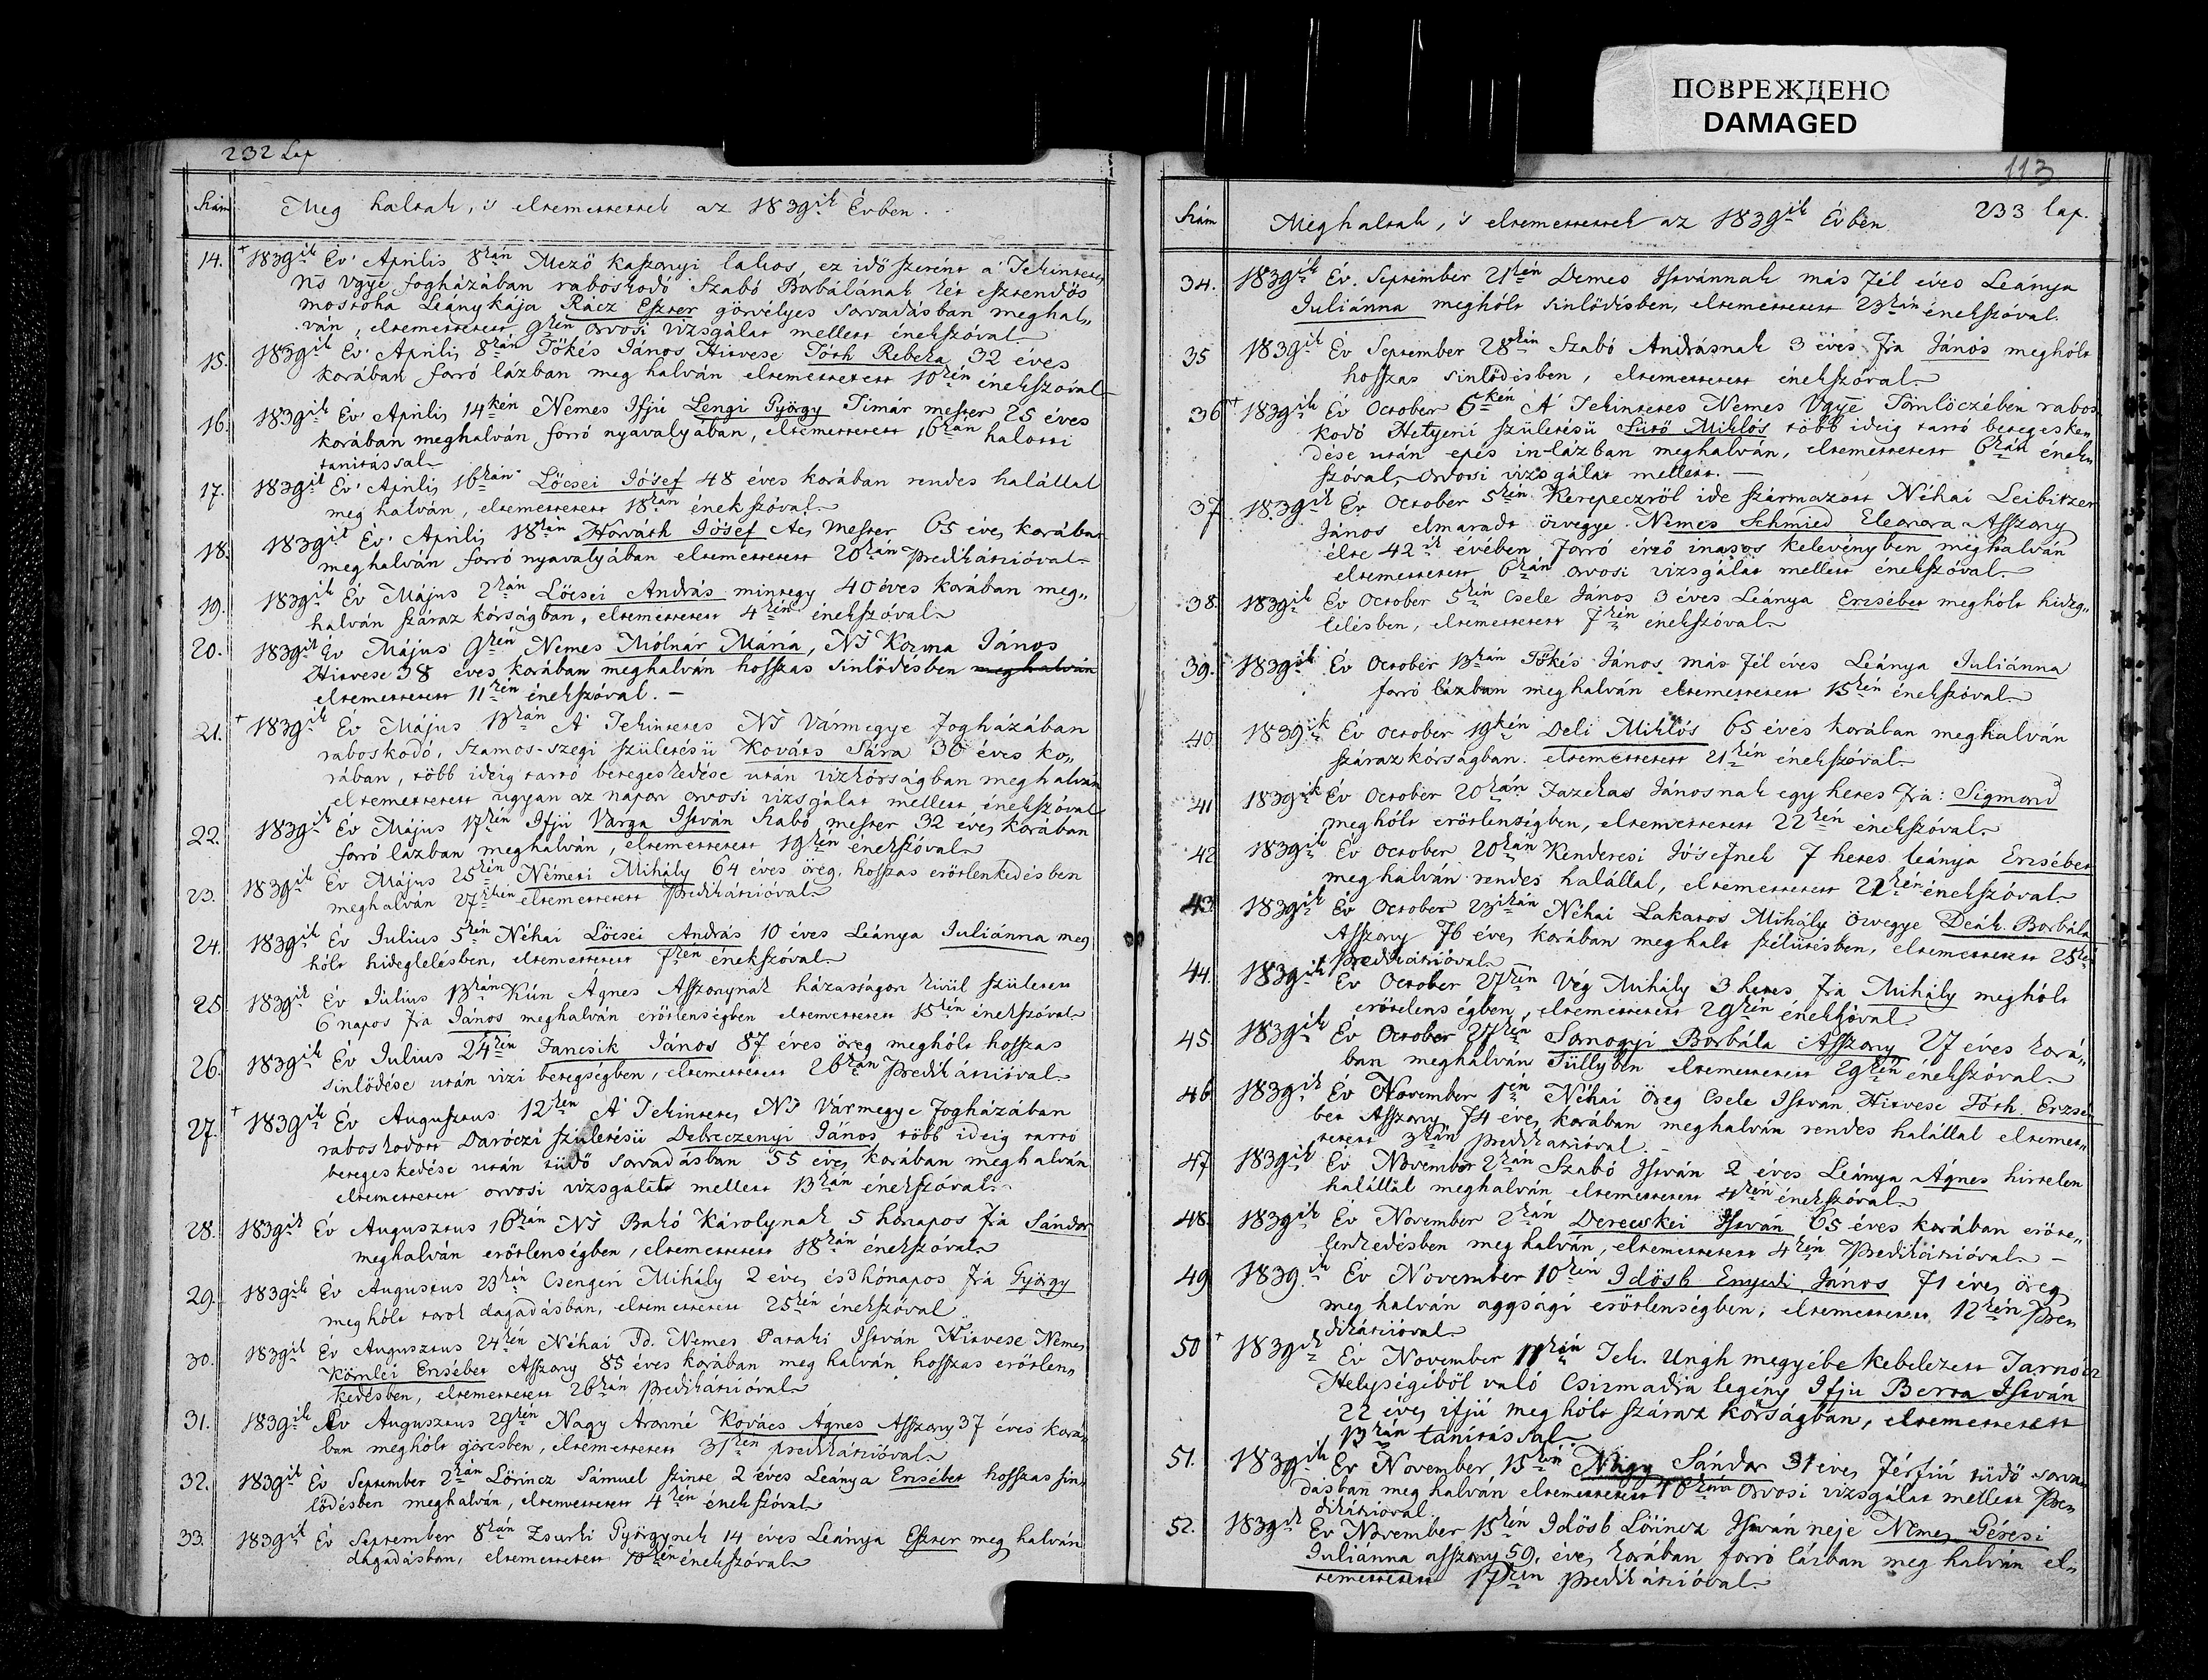 ПОВРЕЖДЕНО
DAMAGED
232 Lap
Szám Meg haltak, 's eltemettettek az 1839ik Évben.
14. + 1839ik Év Aprilis 8kán Mező kaszonyi lakos, ez idő szerént a' Tekintetes
Ns Vgye fogházában raboskodó Szabó Borbálának két esztendős
mostoha Leánykája Rácz Eszter görvélyes sorvadásban meghal„
ván, eltemettetett 9kén orvosi vizsgálat mellett énekszóval.
15. 1839ik Év Aprilis 8kán Tőkés János Hitvese Tóth Rebeka 32 éves
korában forró lázban meg halván eltemettetett 10kén énekszóval
16. 1839ik Év Aprilis 14kén Nemes Ifjú Lengi György Timár mester 25 éves
korában meghalván forró nyavalyában, eltemettetett 16kán halotti
tanitással
17. 1839ik Év Aprilis 16kán Lőcsei Jósef 48 éves korában rendes halállal
meg halván, eltemettetett 18kán énekszóval
18. 1839ik Év Aprilis 18kán Horváth Jósef Ács Mester 65 éves korában
meghalván forró nyavalyában eltemettetett 20kán Predikátzióval
19. 1839ik Év Május 2kán Lőcsei András mintegy 40 éves korában meg„
halván száraz kórságban, eltemettetett 4kén énekszóval
20. 1839ik Év Május 9kén Nemes Mólnár Mária, NS Kozma János
Hitvese 38 éves korában meghalván hosszas sinlődésben meghalván
eltemettetett 11kén énekszóval. –
21. + 1839ik Év Május 13kán A' Tekintetes NS Vármegye fogházában
raboskodó, Szamos-szegi születésű Kováts Sára 30 éves ko„
rában, több ideig tartó betegeskedése után vizkórságban meghalván
eltemettetett ugyan az napon orvosi vizsgálat mellett énekszóval
22. 1839ik Év Május 17kén Ifjú Varga István Szabó mester 32 éves korában
forró lázban meghalván, eltemettetett 19kén énekszóval
23. 1839ik Év Május 25kén Németi Mihály 64 éves öreg, hosszas erőtlenkedésben
meghalván 27kén eltemettetett Predikátzióval
24. 1839ik Év Julius 5kén Néhai Lőcsei András 10 éves Leánya Juliánna meg
hólt hideglelésben, eltemettetett 7kén énekszóval
25 1839ik Év Július 13kán Kún Ágnes Asszonynak házasságon kivül született
6 napos fia János meghalván erőtlenségben eltemettetett 15kén énekszóval
26. 1839ik Év Julius 24kén Jancsik János 87 éves öreg meghólt hosszas
sinlődése után vizi betegségben, eltemettetett 26kán Predikátzióval
27. + 1839ik Év Augusztus 12kén A' Tekintetes NS Vármegye fogházában
raboskodott Daróczi születésű Debreczenyi János, több ideig tartó
betegeskedése után tüdő sorvadásban 55 éves korában meghalván
eltemettetett orvosi vizsgálat mellett 13kán énekszóval
28. 1839ik Év Augusztus 16kán NS Bakó Károlynak 5 hónapos fia Sándor
meghalván erőtlenségben, eltemettetett 18kán énekszóval
29. 1839ik Év Augustus 23kán Csengeri Mihály 2 éves és 3 hónapos fia György
meghólt torok dagadásban, eltemettetett 25kén énekszóval
30. 1839ik Év Augusztus 24kén Néhai Id. Nemes Pataki István Hitvese Nemes
Kömlei Ersébet Asszony 85 éves korában meg halván hosszas erőtlen„
kedésben, eltemettetett 26kán predikátzióval
31. 1839ik Év Augusztus 29kén Nagy Áronné Kovács Ágnes Asszony 37 éves korá
ban meghólt görcsben, eltemettetett 31kén predikátzióval
32. 1839ik Év September 2kán Lőrincz Sámuel szinte 2 éves Leánya Ersébet hosszas sin„
lődésben meghalván, eltemettetett 4kén énekszóval
33. 1839ik Év September 8kán Zsurki Györgynek 14 éves Leánya Eszter meg halván
dagadásban, eltemettetett 10kén énekszóval
113
Szám Meghaltak, 's eltemettettek az 1839ik Évben. 233 lap.
34. 1839ik Év. September 21kén Demes Istvánnak más fél éves Leánya
Juliánna meghólt sinlődésben, eltemettetett 23kán énekszóval.
35 1839ik Év September 28kán Szabó Andrásnak 3 éves fia János meghólt
hosszas sinlődésben, eltemettetett énekszóval
36 + 1839ik Év October 5kén A' Tekintetes Nemes Vgye Tömlöczében rabos
kodó Hetyeni születésű Sütő Miklós több ideig tartó betegeske„
dése után epés in-lázban meghalván, eltemettetett 6kán ének„
szóval, orvosi vizsgálat mellett. –
37 1839ik Év October 5kén Kerepeczről ide származott Néhai Leibitzer
János elmaradt özvegye Nemes Schmied Eleonora Asszony
élte 42ik évében forró érző inapos kelevényben meghalván
eltemettetett 6kán orvosi vizsgálat mellett énekszóval.
38. 1839ik Év October 5kén Csele János 3 éves Leánya Ersébet meghólt hideg„
lelésben, eltemettetett 7kén énekszóval
39. 1839ik Év October 13kán Tőkés János más fél éves Leánya Juliánna
forró lázban meghalván eltemettetett 15kén énekszóval
40 1839ik Év October 19kén Deli Miklós 65 éves korában meghalván
száraz kórságban. eltemettetett 21kén énekszóval
41 1839ik Év October 20kán Fazekas Jánosnak egy hetes fia: Sigmond
meghólt erőtlenségben, eltemettetett 22kén énekszóval
42 1839ik Év October 20kán Kenderesi Jósefnek 7 hetes leánya Ersébet
meghalván rendes halállal, eltemettetett 22kén énekszóval
43 1839ik Év October 23kán Néhai Lakatos Mihály Özvegye Deák Borbála
Asszony 76 éves korában meghalt szélütésben, eltemettetett 25kén
predikátzióval
44. 1839ik Év October 27kén Vég Mihály 3 hetes fia Mihály meghólt
erőtelenségben, eltemettetett 29kén énekszóval
45 1839ik Év October 27kén Somogyi Borbála Asszony 27 éves korá„
ban meghalván Süllyben eltemettetett 29kén énekszóval
46 1839ik Év November 1én Néhai Öreg Csele István Hitvese Tóth Erzsé
bet Asszony 74 éves korában meghalván rendes halállal eltemet„
tetett 3kán predikátzióval.
47 1839ik Év November 2kán Szabó István 2 éves Leánya Ágnes hirtelen
halállal meghalván eltemettetett 4kén énekszóval
48. 1839ik Év November 2kán Derecskei István 65 éves korában erőte„
lenkedésben meg halván, eltemettetett 4kén Predikátzióval –
49 1839ik Év November 10kén Idősb Enyedi János 71 éves öreg
meg halván aggsági erőtlenségben, eltemettetett 12kén Pre„
dikátzióval
50 + 1839ik Év November 11kén Tek. Ungh megyébe kebelezett Tarnócz
Helységiből való Csizmadia legény Ifju Berta István
22 éves ifjú meg hólt száraz kórságban, eltemettetett
13kán tanitással
51. 1839ik Év November 15kén Nagy Sándor 31 éves férfiú tüdő sorva
dásban meg halván eltemettetett orvosi vizsgálat mellett Pre„
dikátzióval
52. 1839ik Év November 15kén Idősb Lőrincz István neje Nemes Géresi
Juliánna asszony 59. éves korában forró lázban meg halván el„
temettetett 17kén predikátzióval